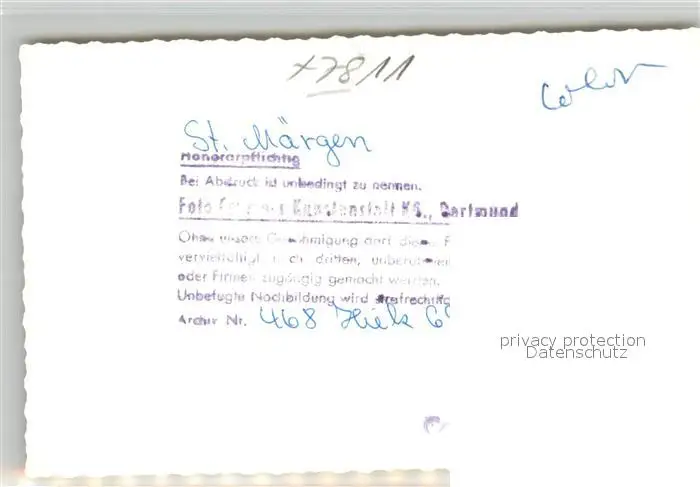 +7811
Color
St. Märgen
Honorarpflichtig
Bei Abdruck ist unbedingt zu nennen.
Foto Kunstanstalt KG., Dortmund
Ohne unsere Genehmigung darf dieses F
vervielfältigt noch dritten, unberufenen
oder Firmen zugängig gemacht werden.
Unbefugte Nachbildung wird strafrechtlic
Archiv Nr. 468
privacy protection
Datenschutz